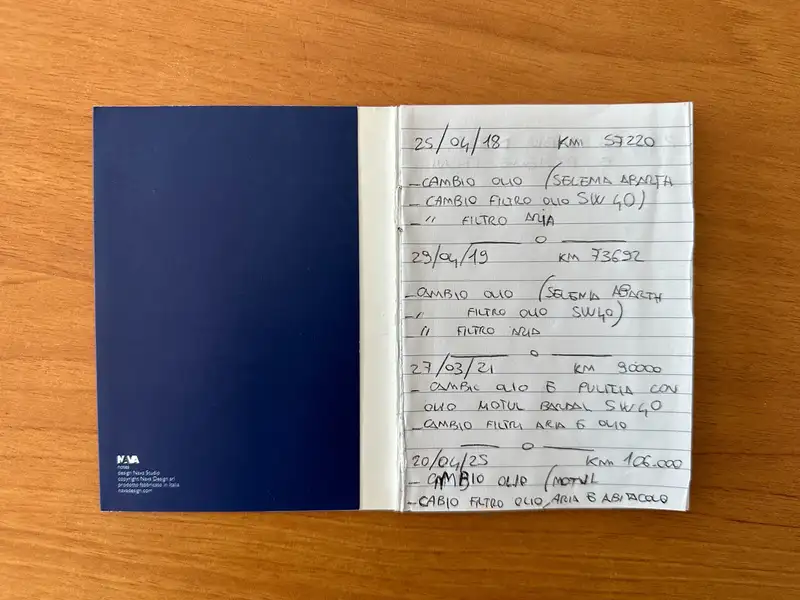 NAVA
notes
design Nava Studio
copyright Nava Design srl
prodotto fabbricato in Italia
navadesign.com
25/04/18 KM 57220
- CAMBIO OLIO (SELEMA ABARTH
- CAMBIO FILTRO OLIO 5W40)
- " FILTRO ARIA
o
29/04/19 KM 73692
- CAMBIO OLIO (SELENIA ABARTH
- " FILTRO OLIO 5W40)
" FILTRO ARIA
o
27/03/21 KM 90000
- CAMBIO OLIO E PULITIA CON
OLIO MOTUL BARDAL 5W40
- CAMBIO FILTRI ARIA E OLIO
o
20/04/25 KM 106.000
- CAMBIO OLIO (MOTUL
- CABIO FILTRO OLIO, ARIA E ABITACOLO